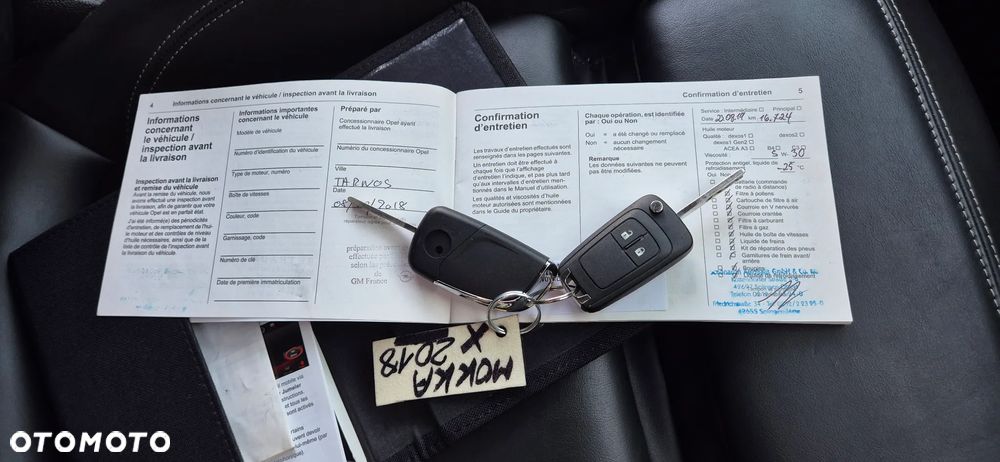 4
Informations concernant le véhicule / inspection avant la livraison
Informations
concernant
le véhicule /
inspection avant
la livraison
Inspection avant la livraison
et remise du véhicule
Avant la remise du véhicule, nous
avons effectué une inspection avant
livraison, afin de garantir que votre
véhicule Opel est en parfait état.
J'ai été informé(e) des périodicités
d'entretien, de remplacement de l'huile
moteur et des contrôles de niveau
d'huile nécessaires, ainsi que de la
liste de contrôle de l'inspection avant
la livraison du véhicule
Informations importantes
concernant le véhicule
Modèle de véhicule
Numéro d'identification du véhicule
Type de moteur, numéro
Boîte de vitesses
Couleur, code
Garnissage, code
Numéro de clé
Date de première immatriculation
Préparé par
Concessionnaire Opel ayant
effectué la livraison
Numéro du concessionnaire Opel
Ville
TARNOS
Date
2018
préparation avant
effectuée
selon les
de
GM France
Confirmation d'entretien
5
Confirmation
d'entretien
Les travaux d'entretien effectués sont
renseignés dans les pages suivantes.
Un entretien doit être effectué à
chaque fois que l'affichage
d'entretien l'indique, et pas plus tard
qu'aux intervalles d'entretien men-
tionnés dans le Manuel d'utilisation.
Les qualités et viscosités d'huile
moteur autorisées sont mentionnées
dans le Guide du propriétaire.
Chaque opération, est identifiée
par : Oui ou Non
Oui = a été changé ou remplacé
Non = aucun changement
nécessaire
Remarque
Les données suivantes ne peuvent
pas être modifiées.
Service : Intermédiaire Principal
Date 20.08.19 km 16.724
Huile moteur
Qualité : dexos1 dexos2
dexos1 Gen2
ACEA A3 B4 C3
Viscosité : 5 W- 30
Protection antigel, liquide de
refroidissement -25 °C
Oui
(commande
de radio à distance)
Filtre à pollens
Cartouche de filtre à air
Courroie en V nervurée
Courroie crantée
Filtre à carburant
Filtre à gaz
Huile de boîte de vitesses
Liquide de freins
Kit de réparation des pneus
Garnitures de frein avant/
arrière
Bougies
Liquide de refroidissement
MOKKA
X 2018
OTOMOTO